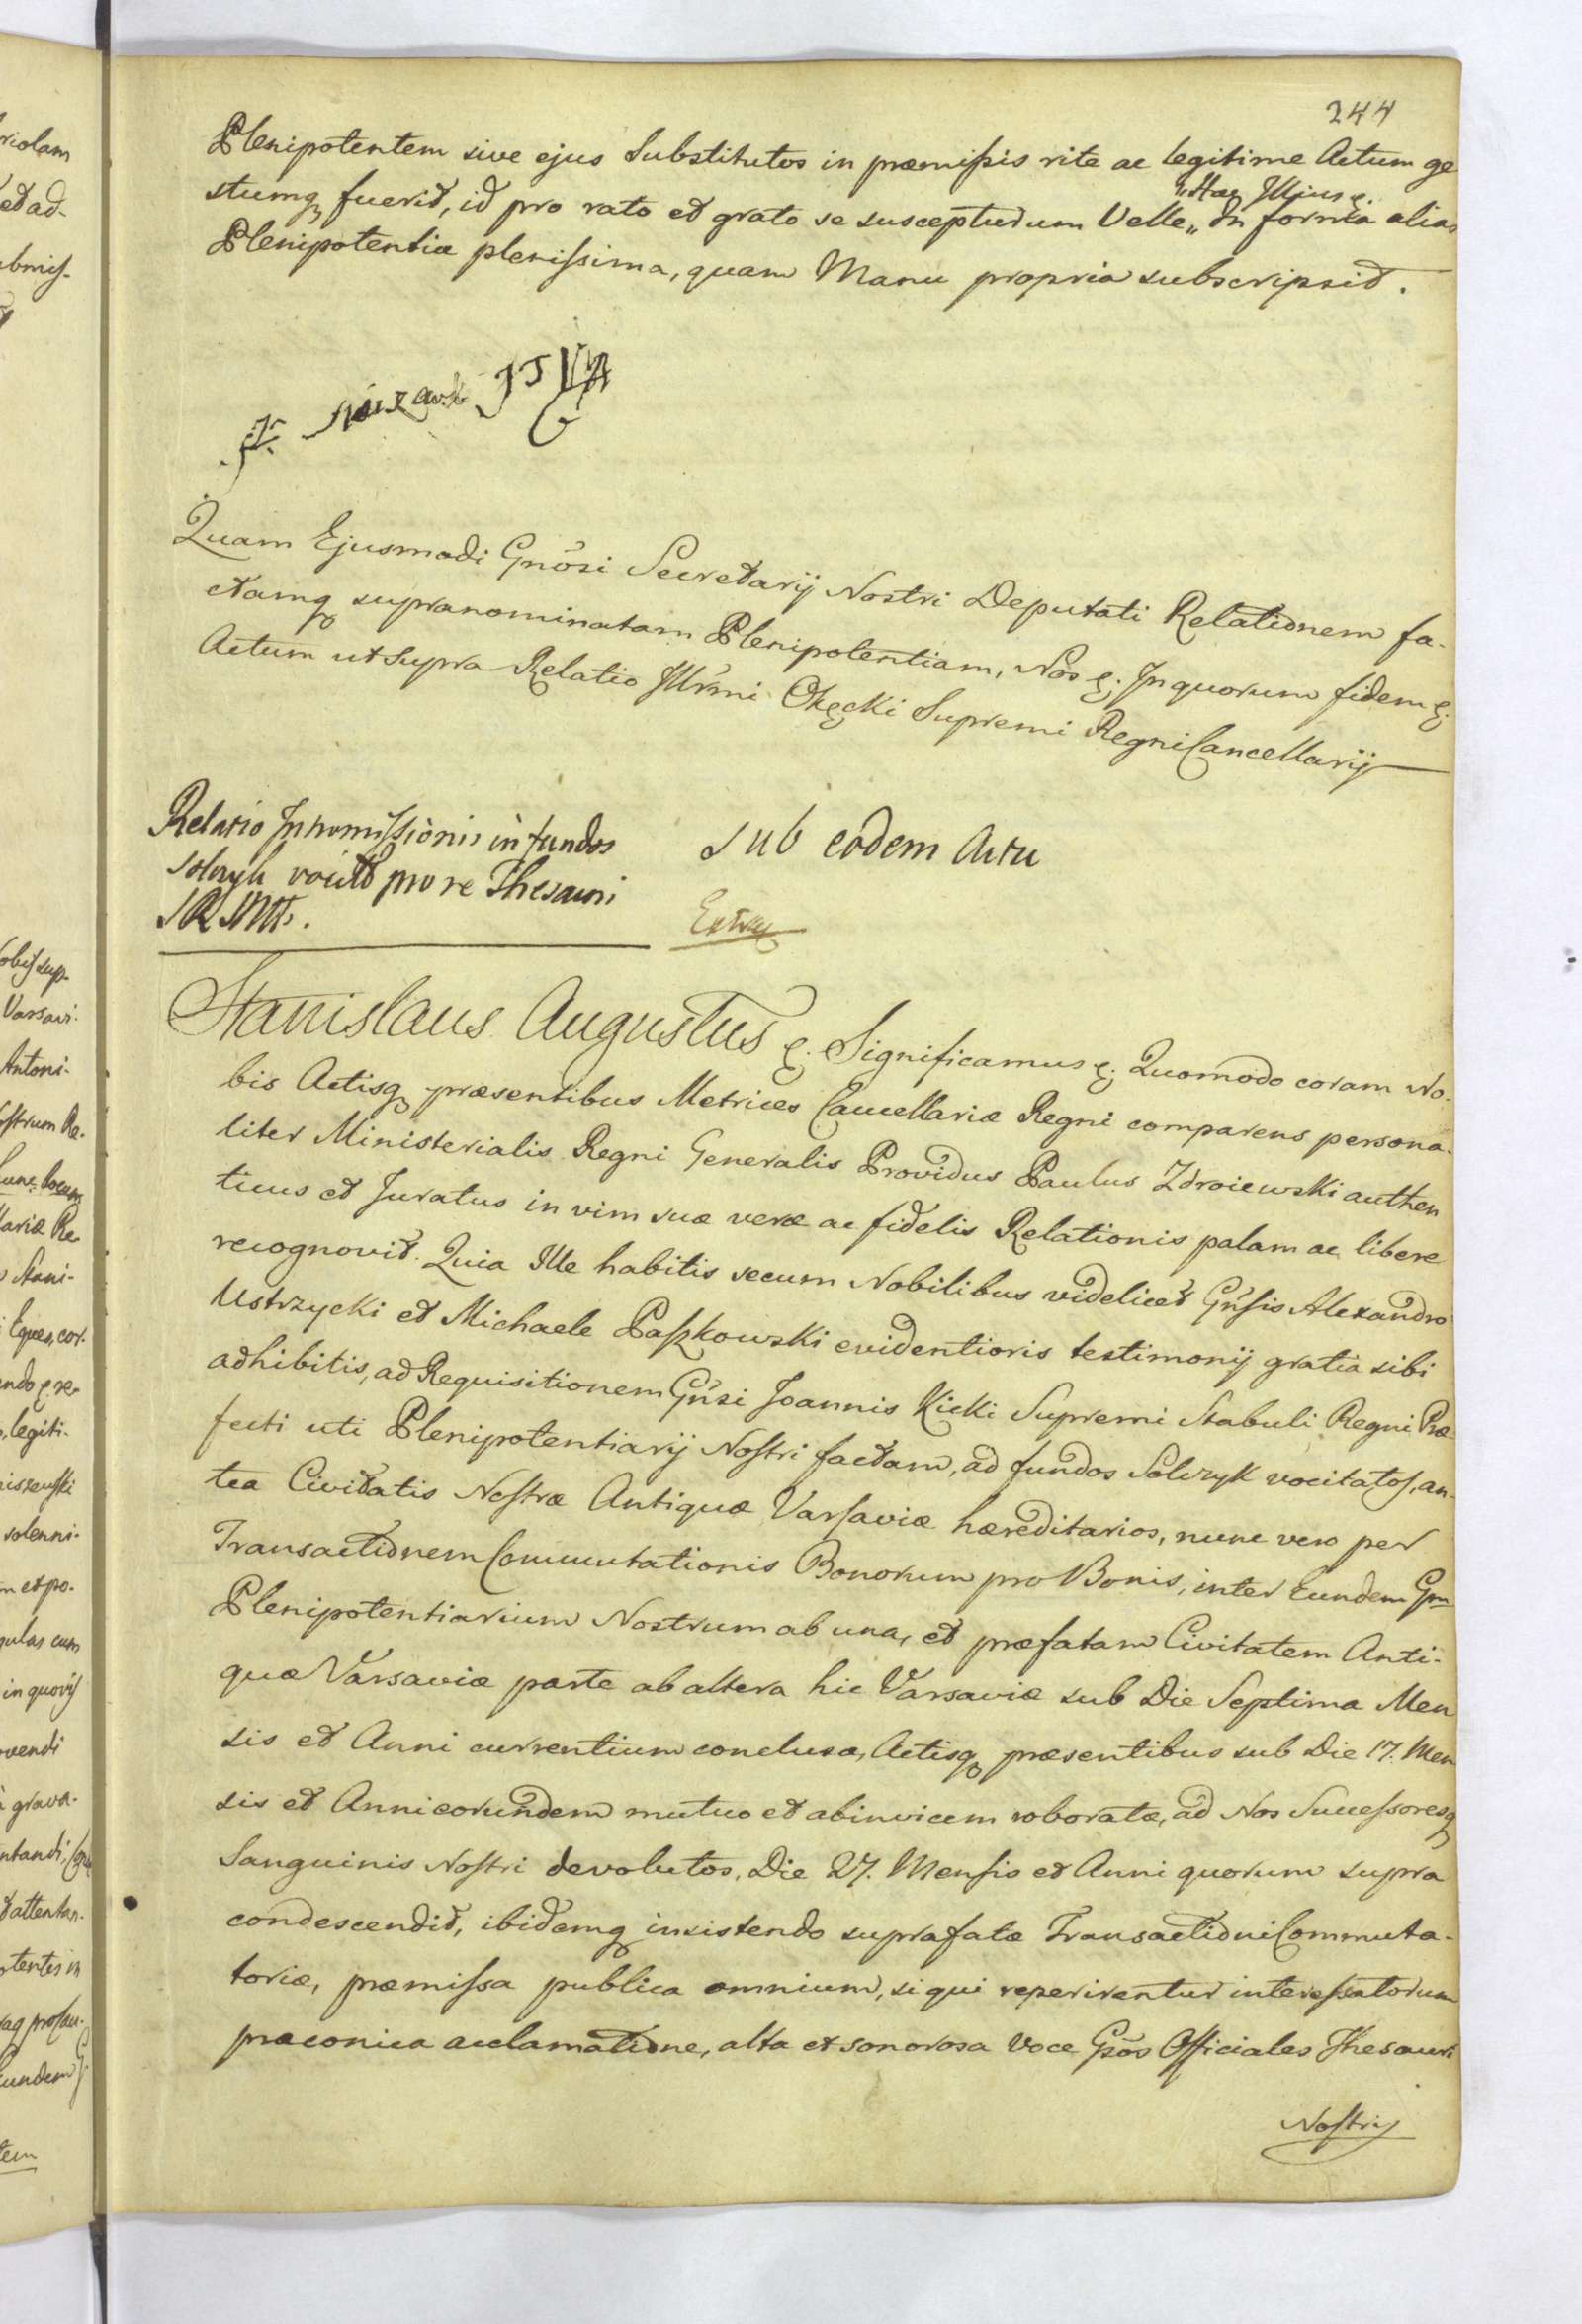 244
Plenipotentem sive ejus Substitutos in præmissis rite ac legitime Actum ge
stumq fuerit, id pro rato et grato se suscepturum Velle „ In forma alias
„Hac Illius e.
Plenipotentiæ plenissima, quam Manu propria subscripsit.
Quam Ejusmodi Gnõsi Secretarij Nostri Deputati Relationem fa-
ctamq supranominatam Plenipotentiam, Nos e. In quorum fidem e.
Actum ut supra Relatio Illr̃mi Okęcki Supremi Regni Cancellarij
Relatio Intromissionis in fundos
Solczyk vocit̃ pro re Thesauri
S R Mtt̃s.
Sub eodem Actu
Extrad
Stanislaus Augustus e. Significamus e. Quomodo coram No-
bis Actisq præsentibus Metrices Cancellariæ Regni comparens persona-
liter Ministerialis Regni Generalis Providus Paulus Zdroiewski authen
ticus et Juratus in vim suæ veræ ac fidelis Relationis palam ac libere
recognovit. Quia Ille habitis secum Nobilibus videlicet Gñsis Alexandro
Ustrzycki et Michaele Paszkowski evidentioris testimonij gratia sibi
adhibitis, ad Requisitionem Gñsi Joannis Kicki Supremi Stabuli Regni Præ
fecti uti Plenipotentiarij Nostri factam, ad fundos Solczyk vocitatos, an-
tea Civitatis Nostræ Antiquæ Varsaviæ hæreditarios, nunc vero per
Transactionem Commutationis Bonorum pro Bonis, inter Eundem Gm
Plenipotentiarium Nostrum ab una, et præfatam Civitatem Anti-
quæ Varsaviæ parte ab altera hic Varsaviæ sub Die Septima Men
sis et Anni currentium conclusa, Actisq præsentibus sub Die 17. Men
sis et Anni eorundem mutuo et abinvicem roboratæ, ad Nos Successoresq
Sanguinis Nostri devolutos, Die 27. Mensis et Anni quorum supra
condescendit, ibidemq insistendo suprafatæ Transactioni Commuta-
toriæ, præmissa publica omnium, si qui reperirentur interessatorum
præconica acclamatione, alta et sonorosa voce Gsõs Officiales Thesauri
Nostri